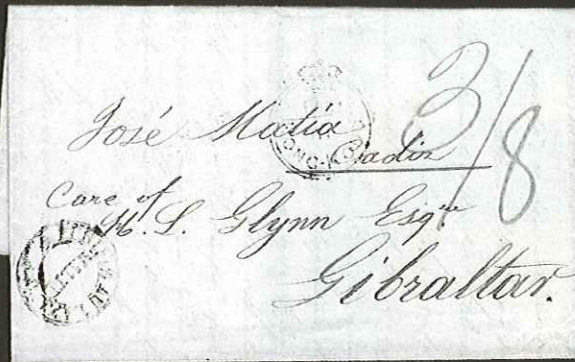 José Matía
Cadiz
Care of
H. S. Glynn Esqre
Gibraltar.
3/8